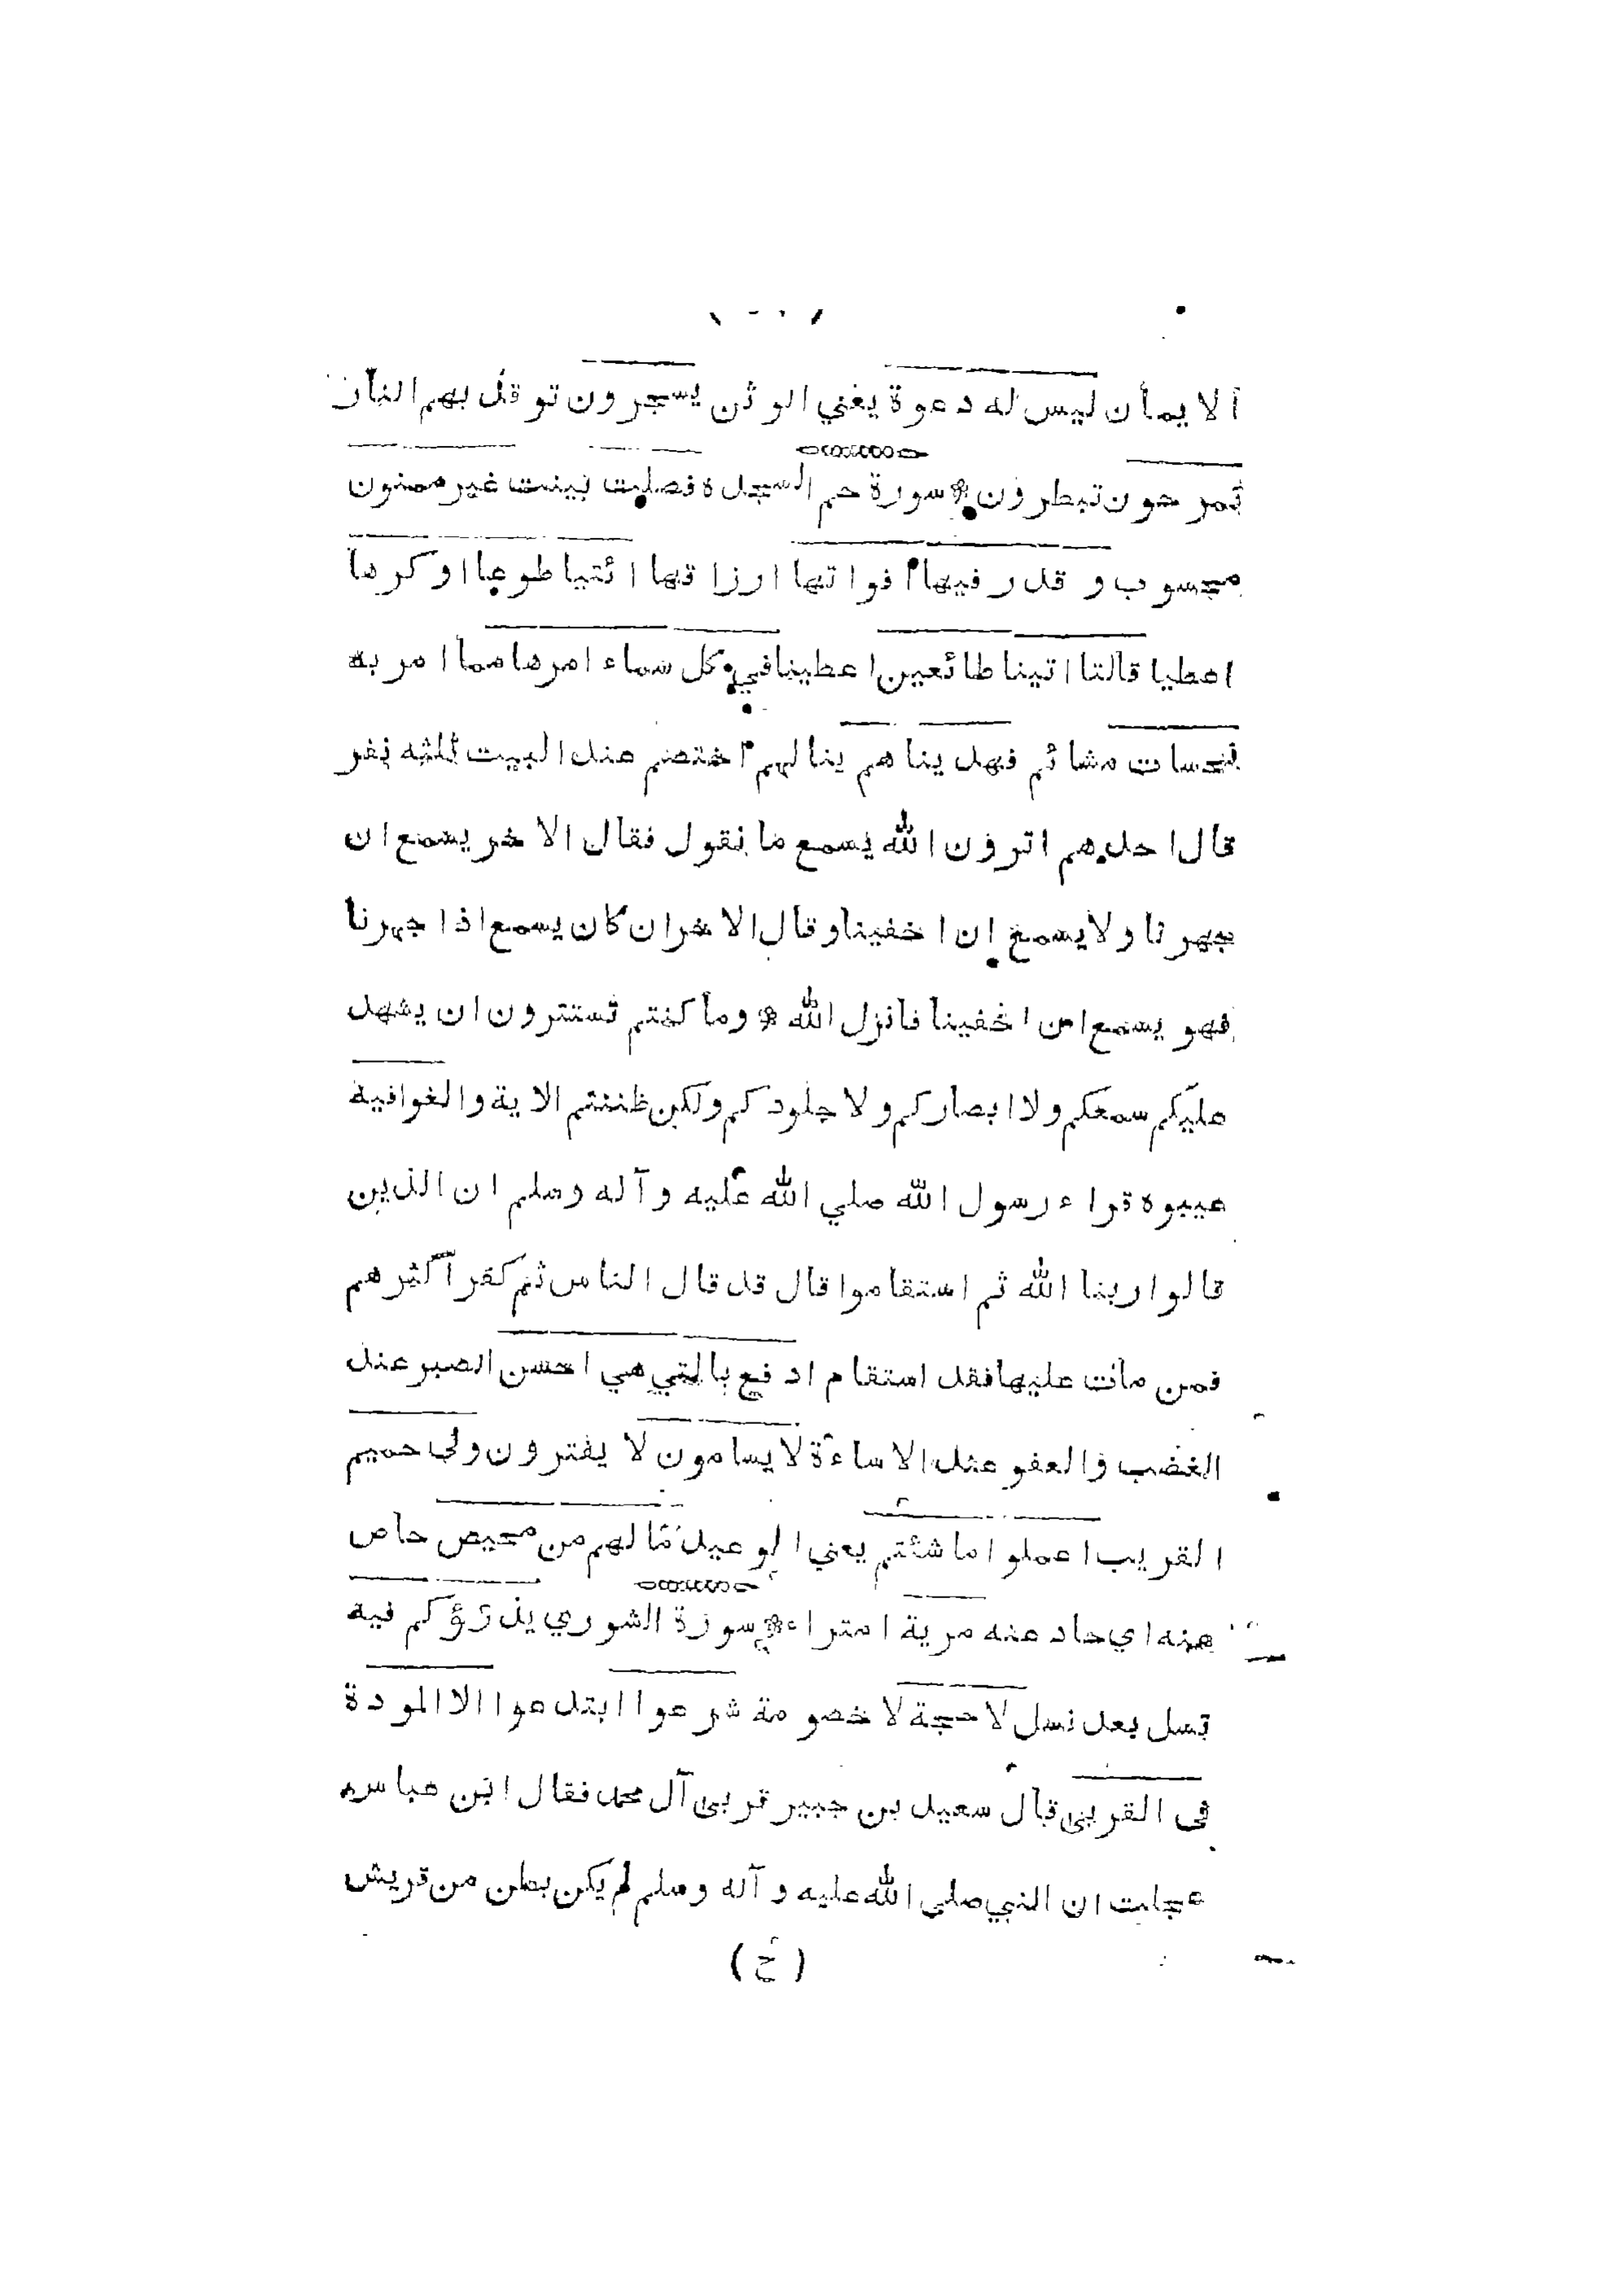 الايمان ليس له دعوة يعني الوثن يسجرون توقد بهم النار
تمرحون تبطرون سورة حم السجدة فصلت بينت غير ممنون
محسوب وقدر فيها اقواتها ارزاقها ائتيا طوعا او كرها
اعطيا قالتا اتينا طائعين اعطينا في كل سماء امرها مما امر به
نحسات مشائم فهديناهم بينا لهم اختصم عند البيت ثلثه نفر
قال احدهم اترون الله يسمع ما نقول فقال الاخر يسمع ان
جهرنا ولا يسمع ان اخفينا وقال الاخر ان كان يسمع اذا جهرنا
فهو يسمع اذا اخفينا فانزل الله وما كنتم تستترون ان يشهد
عليكم سمعكم ولا ابصاركم ولا جلودكم ولكن ظننتم الاية والغوا فيه
عيبوه قراء رسول الله صلي الله عليه وآله وسلم ان الذين
قالوا ربنا الله ثم استقاموا قال قد قال الناس ثم كفر اكثرهم
فمن مات عليها فقد استقام ادفع بالتي هي احسن الصبر عند
الغضب والعفو عند الاساءة لا يسامون لا يفترون ولى حميم
القريب اعملوا ما شئتم يعني الوعيد ما لهم من محيص حاص
عنه اي حاد عنه مرية امتراء سورة الشوري يذرؤكم فيه
نسل بعد نسل لا حجة لا خصومة شرعوا ابتدعوا الا المودة
فى القربى قال سعيد بن جبير قربى آل محمد فقال ابن عباس
عجلت ان النبي صلى الله عليه وآله وسلم لم يكن بطن من قريش
(ح)